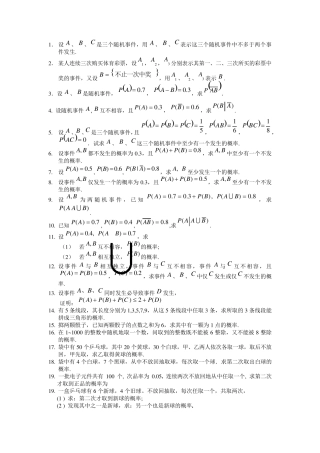 1. 设 A 、 B 、 C 是三个随机事件，用 A 、 B 、 C 表示这三个随机事件中不多于两个事
件发生.
2. 某人连续三次购买体育彩票，设 A₁ ， A₂ ， A₃ 分别表示其第一、二、三次所买的彩票中
奖的事件，又设 B = {不止一次中奖} ，用 A₁ 、 A₂ 、 A₃ 表示 B .
3. 设 A 、 B 是随机事件， P(A) = 0.7 ， P(A−B) = 0.3 ，求
4. 设随机事件 A、B 互不相容，且 P(A) = 0.3 ， P(B̄) = 0.6 ，求
5. 设 A 、 B 、 C 是三个随机事件,且 P(A) = P(B) = P(C) = 1/5 ， P(AB) = 1/6 ， P(BC) = 1/8 ，
P(AC) = 0 ，试求 A 、 B 、 C 这三个随机事件中至少有一个不发生的概率.
6. 设事件 A,B 都不发生的概率为 0.3，且 P(A) + P(B) = 0.8 ，求 A,B 中至少有一个不发
生的概率.
7. 设 P(A) = 0.5 P(B) = 0.6 P(B|Ā) = 0.8 ，求 A,B 至少发生一个的概率.
8. 设事件 A,B 仅发生一个的概率为 0.3，且 P(A) + P(B) = 0.5 ，求 A,B 中至少有一个不发
生的概率.
9. 设 A,B 为两随机事件，已知 P(A) = 0.7 = 0.3 + P(B), P(A∪B) = 0.8 ，求
P(A|A∪B) .
10. 已知 P(A) = 0.7, P(B) = 0.4, P(AB̄) = 0.8 ，求
11. 设 P(A) = 0.4, P(A B) = 0.7 ，求
（1） 若 A,B 互不相容， 的概率；
（2） 若 A,B 相互独立， 的概率.
12. 设事件 A 与 B 相互独立，事件 B 与 C 互不相容，事件 A 与 C 互不相容，且
P(A) = P(B) = 0.5, P(C) = 0.2 ，求事件 A 、 B 、 C 中仅 C 发生或仅 C 不发生的概
率.
13. 设事件 A，B，C 同时发生必导致事件 D 发生，
证明： P(A) + P(B) + P(C) ≤ 2 + P(D)
14. 有 5 条线段，其长度分别为 1,3,5,7,9，从这 5 条线段中任取 3 条，求所取的 3 条线段能
拼成三角形的概率.
15. 掷两颗骰子，已知两颗骰子的点数之和为 6，求其中有一颗为 1 点的概率.
16. 在 1~1000 的整数中随机地取一个数，问取到的整数既不能被 6 整除，又不能被 8 整除
的概率.
17. 袋中有 50 个乒乓球，其中 20 个黄球，30 个白球，甲、乙两人依次各取一球，取后不放
回，甲先取，求乙取得黄球的概率.
18. 袋中有 4 个白球，7 个黑球，从中不放回地取球，每次取一个球．求第二次取出白球的
概率.
19. 一批电子元件共有 100 个，次品率为 0.05．连续两次不放回地从中任取一个，求第二次
才取到正品的概率为
19. 一盒乒乓球有 6 个新球，4 个旧球。不放回抽取，每次任取一个，共取两次，
(1) 求：第二次才取到新球的概率；
(2) 发现其中之一是新球，求：另一个也是新球的概率。